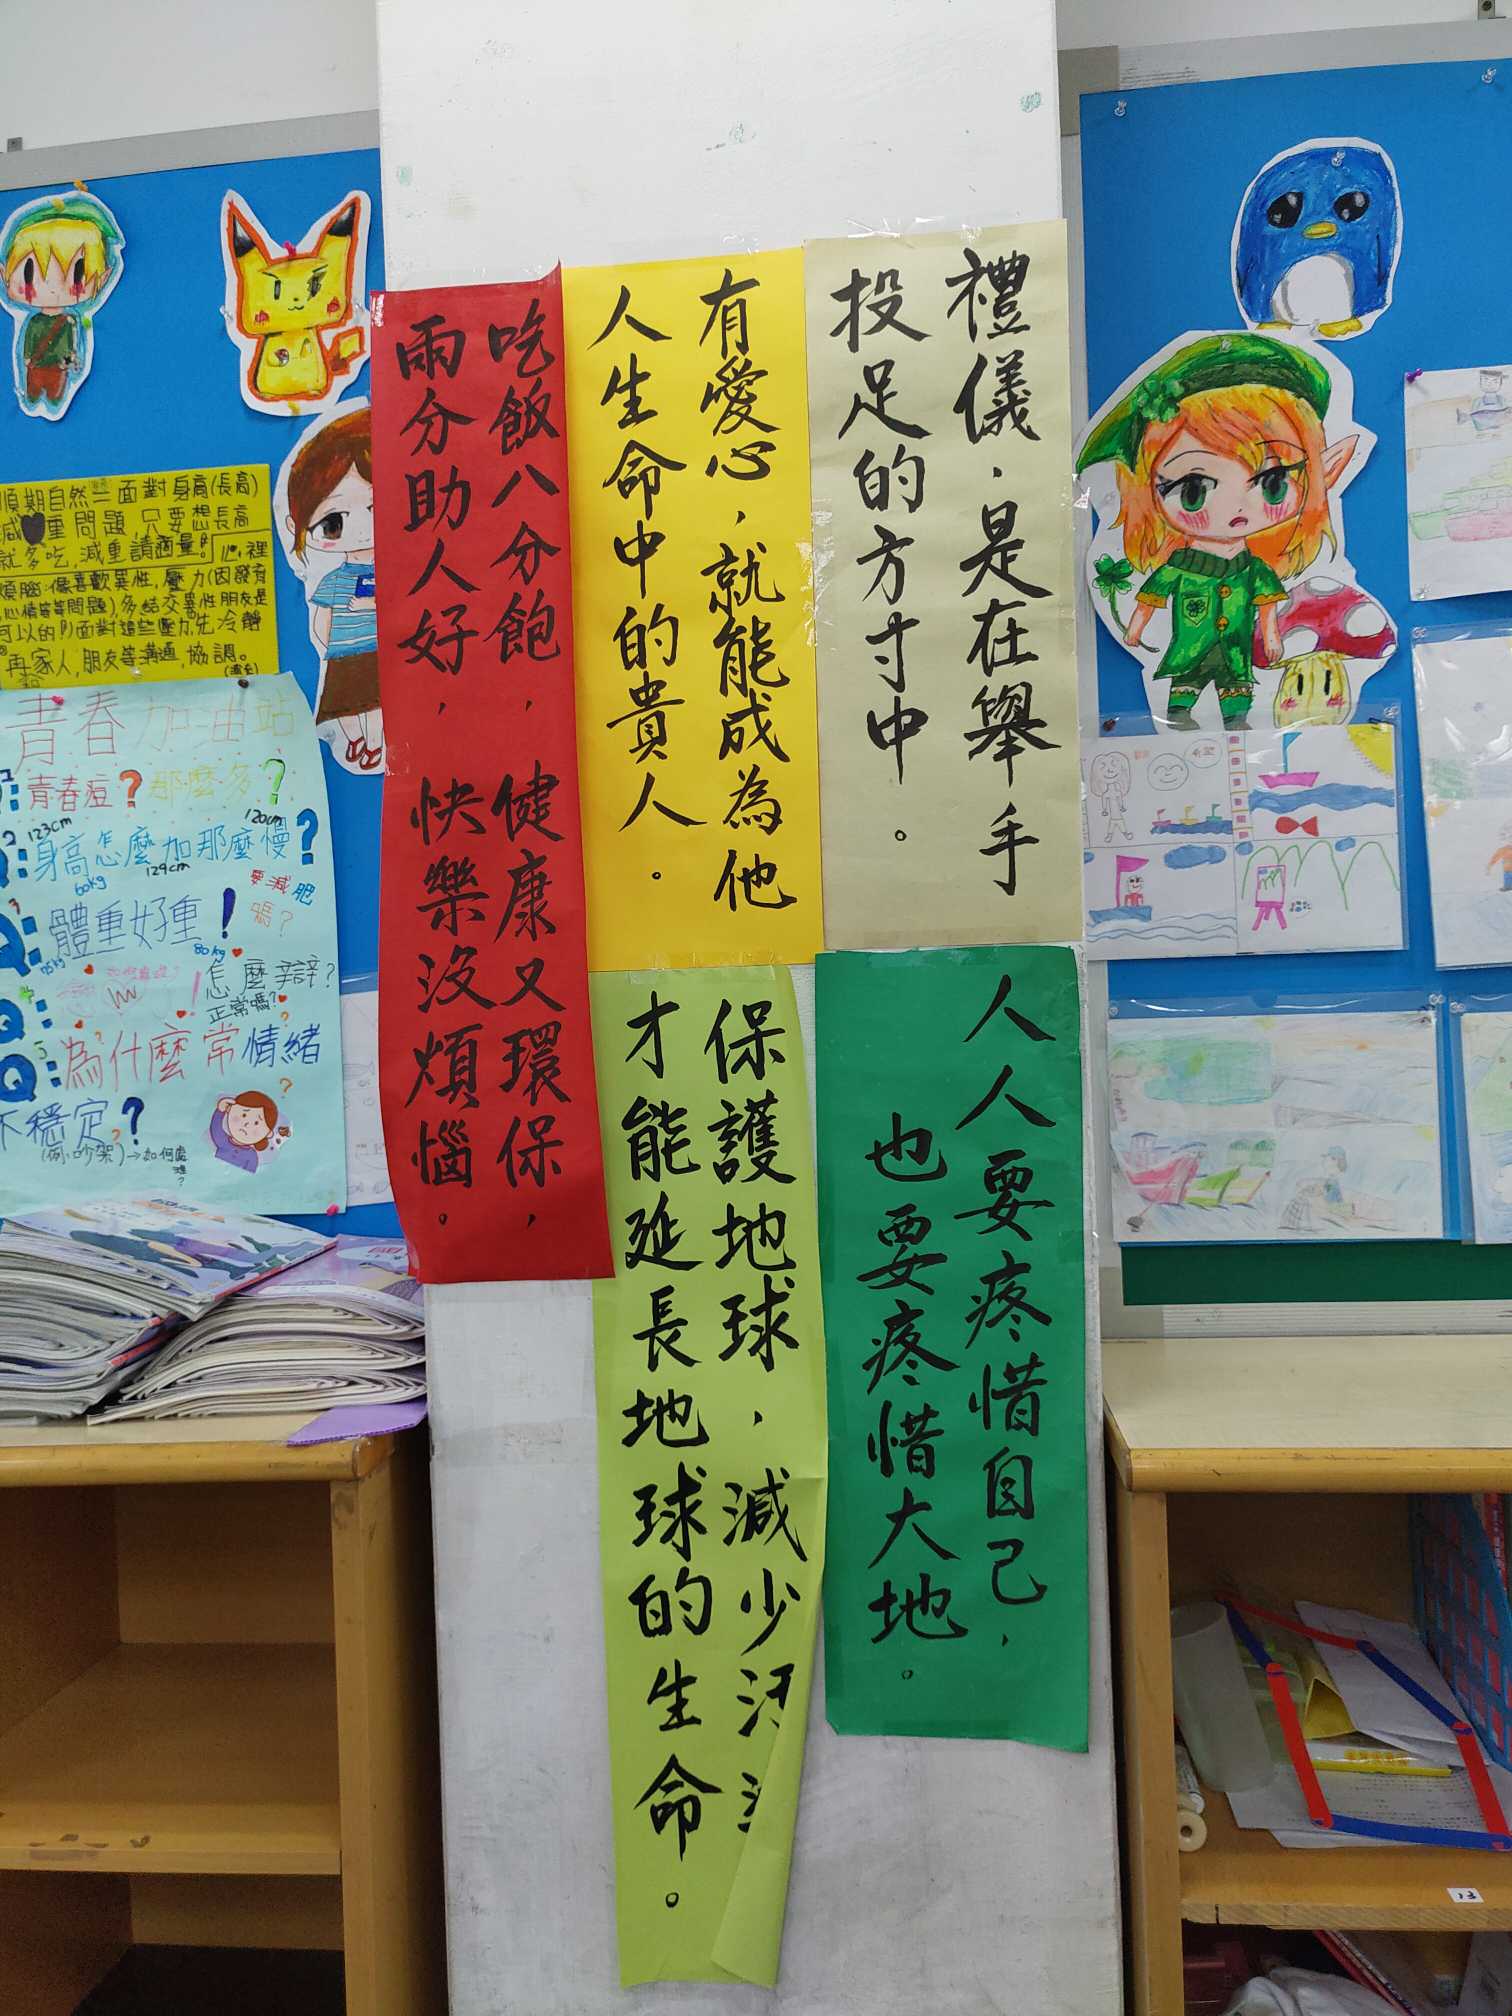 禮儀，是在舉手
投足的方寸中。
有愛心，就能成為他
人生命中的貴人。
吃飯八分飽，健康又環保，
兩分助人好，快樂沒煩惱。
人人要疼惜自己，
也要疼惜大地。
保護地球，減少
才能延長地球的生命。
順期自然=面對身高(長高)
減重問題,只要想長高
就多吃,減重請適量! 心裡
煩腦:像喜歡異性,壓力(因發育
心情等等問題)多結交異性朋友是
可以的!)面對這些壓力先冷靜
再家人,朋友等溝通,協調。
青春加油站
青春痘?那麼多?
123cm 120cm
Q:身高怎麼加那麼慢?
60kg 129cm
Q:體重好重!
要減肥嗎?
75kg 80kg
怎麼辯?
正常嗎?
Q:為什麼常情緒
不穩定?
(例:吵架)→如何處理?
13